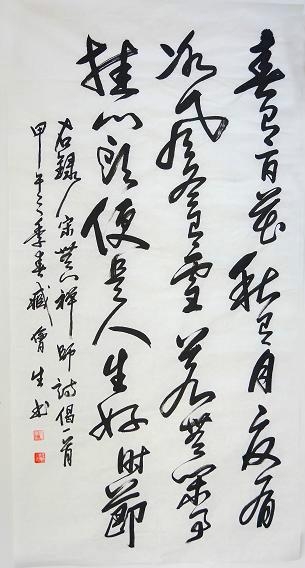 春有百花秋有月夏有
凉风冬有雪若無闲事
挂心头便是人生好时節
右録宋無门禅師詩偈一首
甲午之季春臧會生书